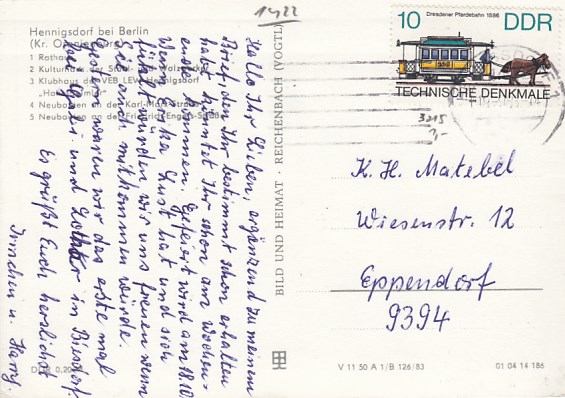 1422
Hennigsdorf bei Berlin
(Kr. Oranienburg)
1 Rathaus
2 Kulturhaus der Stahl- Walzwerker
3 Klubhaus des VEB LEW Hennigsdorf
4 Neubauten an der Karl-Marx-Straße
5 Neubauten an der Friedrich-Engels-Straße
Hallo Ihr Lieben, ergänzend zu meinem
Brief, den Ihr bestimmt schon erhalten
habt, könntet Ihr schon am Wochen-
ende kommen. Gefeiert wird am 18.10.
Wenn Lust hat und sich
fühlt würden wir uns freuen wenn
sie auch mitkommen würde.
Gestern waren wir das erste mal
bei und in Biesdorf.
Es grüßt Euch herzlichst
Irmchen u. Harry.
BILD UND HEIMAT · REICHENBACH (VOGTL)
10 Dresdner Pferdebahn 1886 DDR
TECHNISCHE DENKMALE
3215
K. H. Matebel
Wiesenstr. 12
Eppendorf
9394
V 11 50 A 1/B 126/83
01 04 14 186